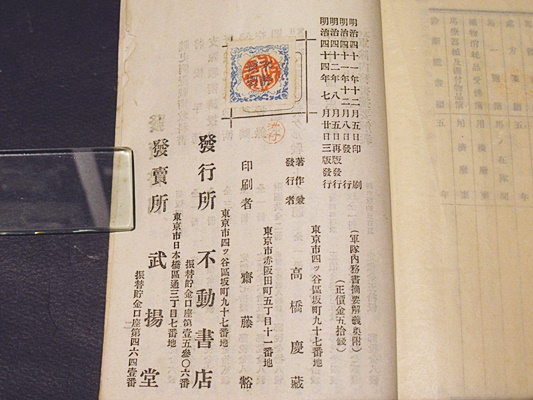 明治四十一年十二月五日印刷
明治四十一年十二月八日發行
明治四十二年八月五日再版發行
明治四十四年七月廿日三版發行
(軍隊內務書摘要解義奥附)
(正價金五拾錢)
東京市四ッ谷區坂町九十七番地
著作兼
發行者
高橋慶藏
東京市赤阪田町五丁目十一番地
印刷者
齋藤谿
東京市四ッ谷區坂町九十七番地
發行所
不動書店
振替貯金口座第壹五參〇六番
東京市日本橋區通三丁目七番地
發賣所
武揚堂
振替貯金口座第四六四壹番